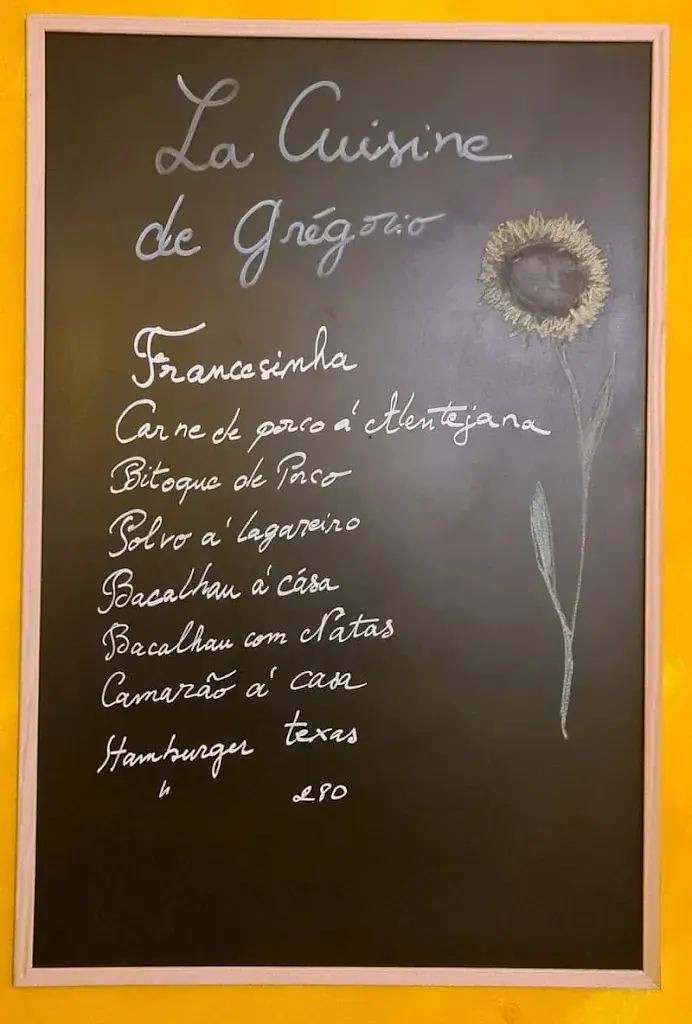 La Cuisine
de Grégorio
Francesinha
Carne de porco á Alentejana
Bitoque de Porco
Polvo a' lagareiro
Bacalhau a' cása
Bacalhau com Natas
Camarão a' casa
Hamburger texas
" 280